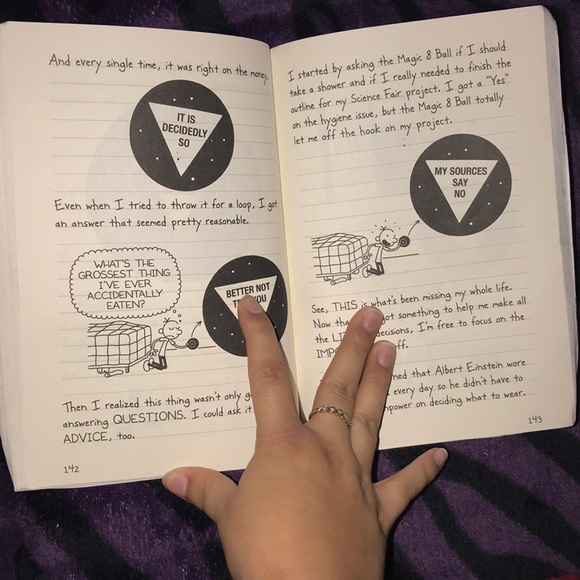 And every single time, it was right on the money.
IT IS
DECIDEDLY
SO
Even when I tried to throw it for a loop, I got
an answer that seemed pretty reasonable.
WHAT'S THE
GROSSEST THING
I'VE EVER
ACCIDENTALLY
EATEN?
BETTER NOT
YOU
Then I realized this thing wasn't only
answering QUESTIONS. I could ask it
ADVICE, too.
142
I started by asking the Magic 8 Ball if I should
take a shower and if I really needed to finish the
outline for my Science Fair project. I got a "Yes"
on the hygiene issue, but the Magic 8 Ball totally
let me off the hook on my project.
MY SOURCES
SAY
NO
See, THIS is what's been missing my whole life.
Now something to help me make all
the decisions, I'm free to focus on the
that Albert Einstein wore
every day so he didn't have to
on deciding what to wear.
143